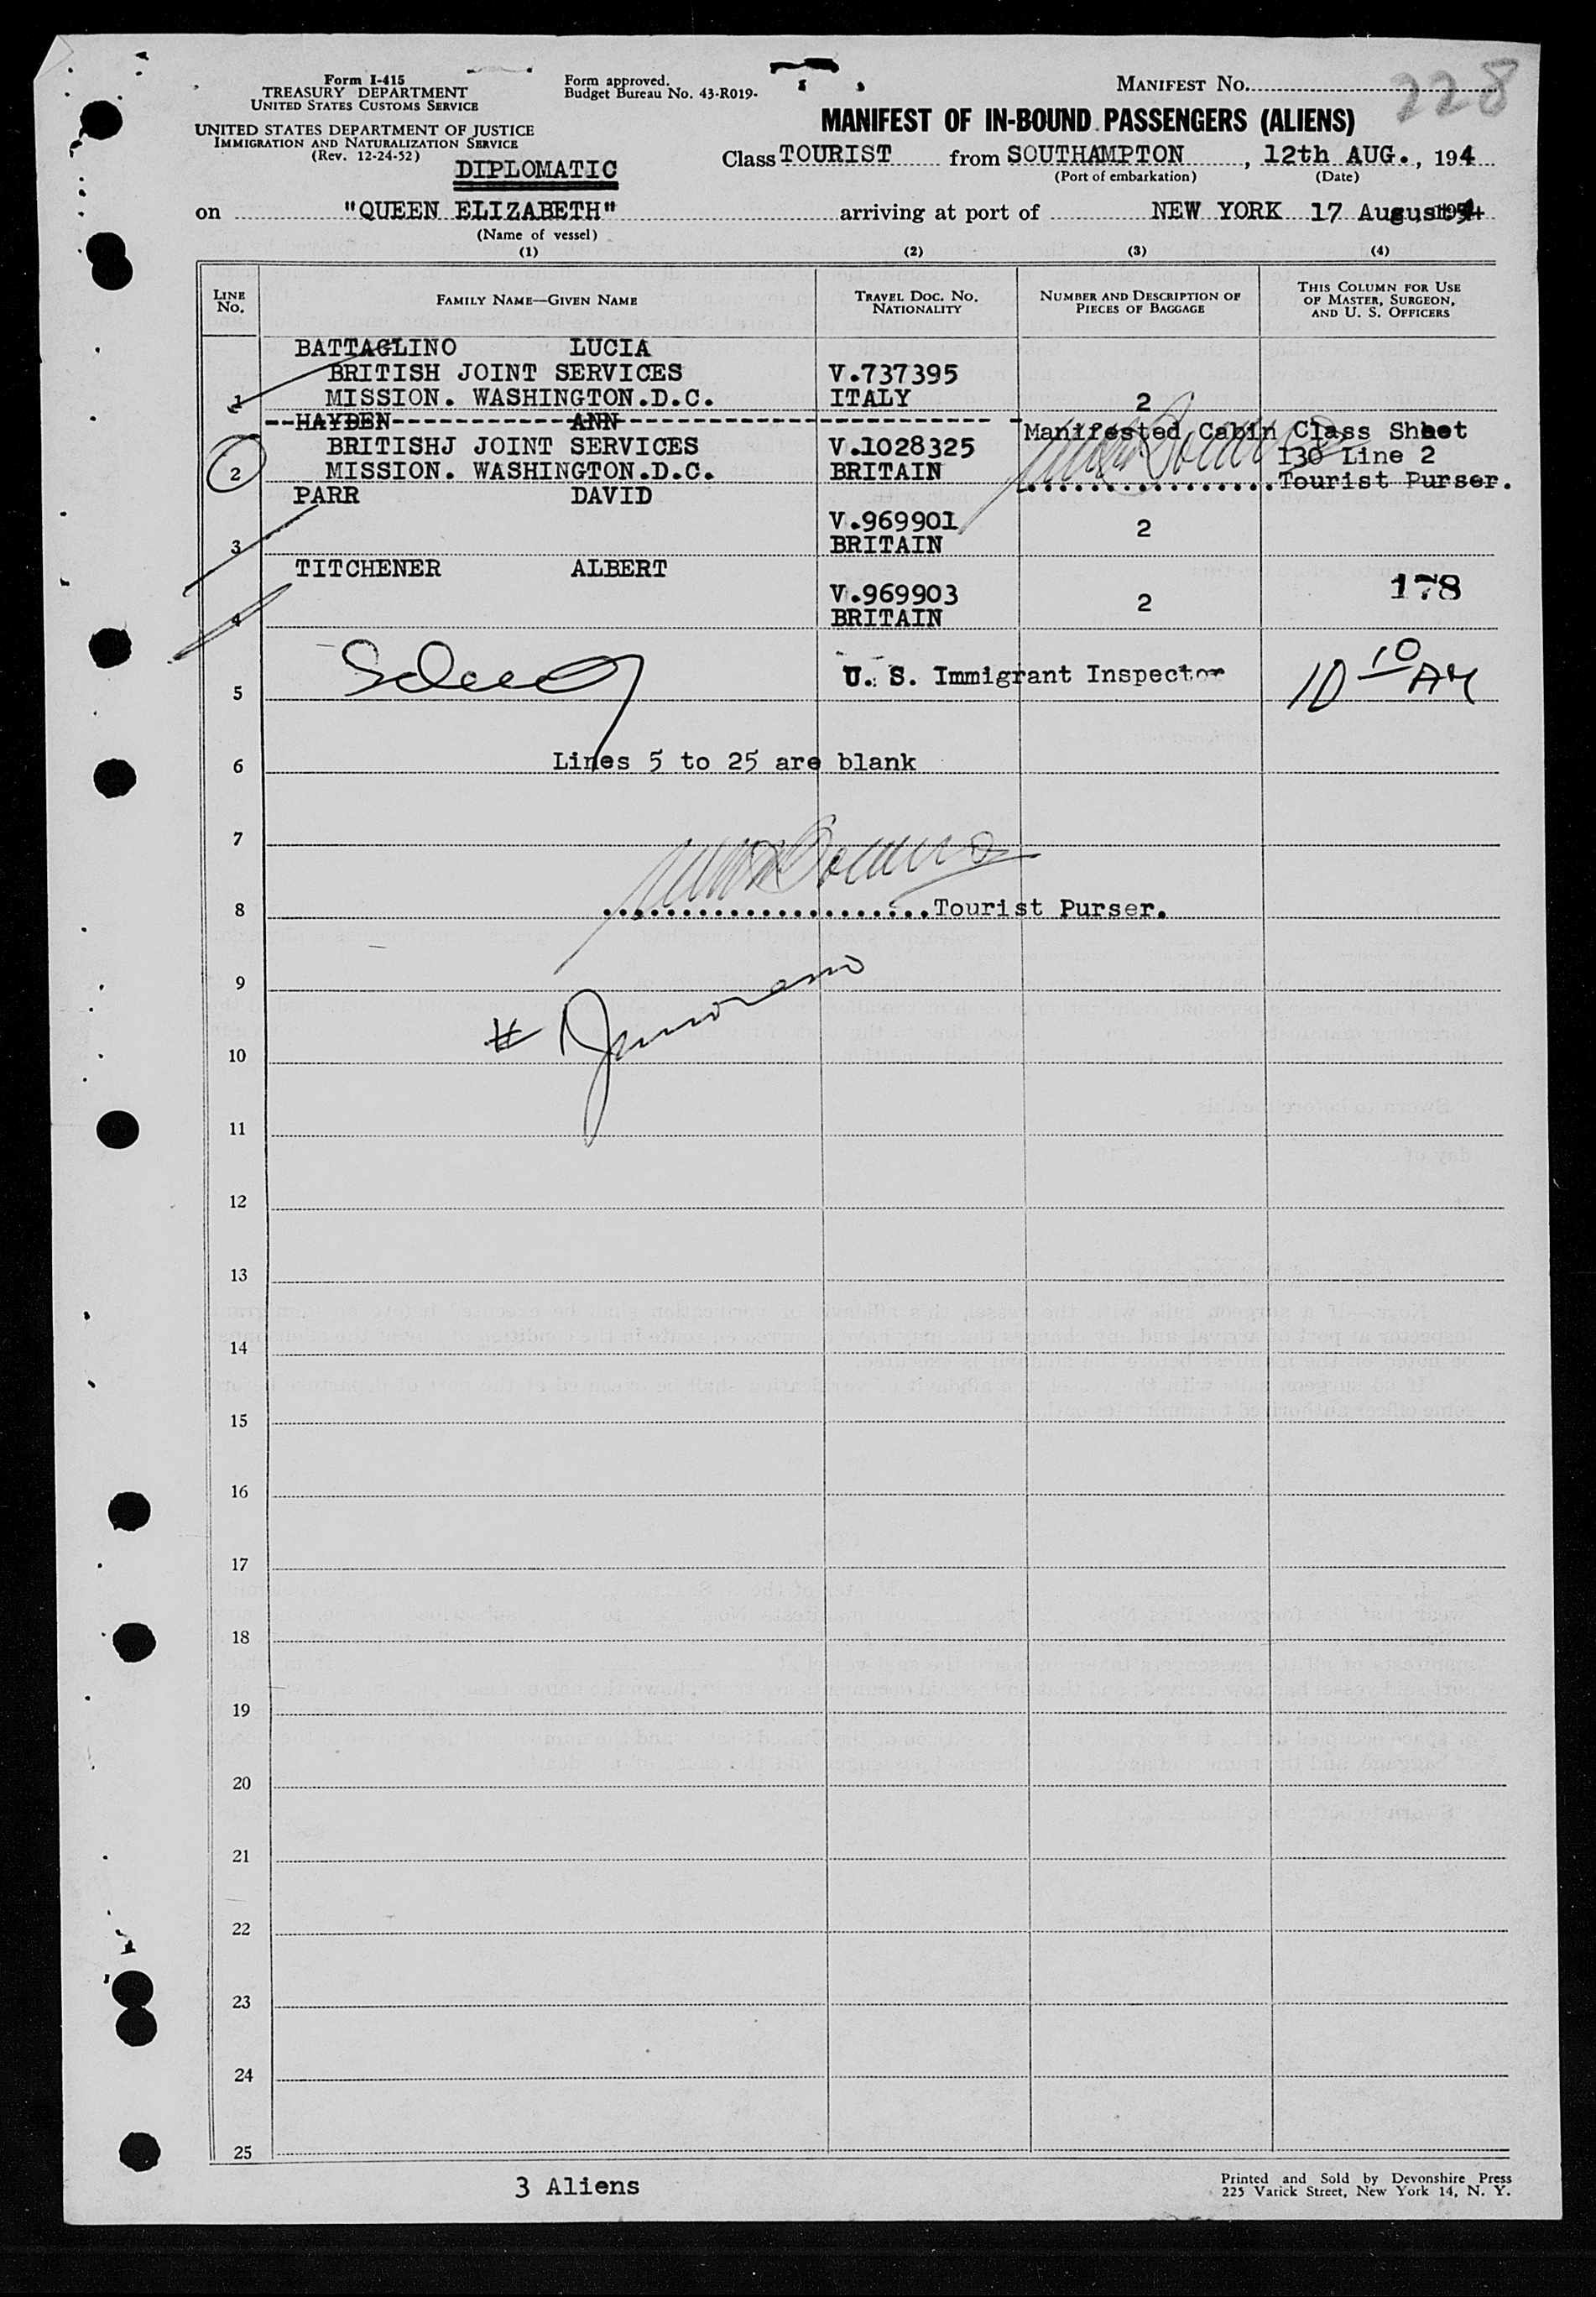 Form I-415
TREASURY DEPARTMENT
UNITED STATES CUSTOMS SERVICE
UNITED STATES DEPARTMENT OF JUSTICE
IMMIGRATION AND NATURALIZATION SERVICE
(Rev. 12-24-52)
DIPLOMATIC
Form approved.
Budget Bureau No. 43-R019-
MANIFEST No. 228
MANIFEST OF IN-BOUND PASSENGERS (ALIENS)
Class TOURIST from SOUTHAMPTON, 12th AUG., 194
(Port of embarkation) (Date)
on "QUEEN ELIZABETH" arriving at port of NEW YORK 17 August
(Name of vessel)
(1) (2) (3) (4)
LINE No. FAMILY NAME—GIVEN NAME TRAVEL DOC. NO. NATIONALITY NUMBER AND DESCRIPTION OF PIECES OF BAGGAGE THIS COLUMN FOR USE OF MASTER, SURGEON, AND U. S. OFFICERS
BATTAGLINO LUCIA
BRITISH JOINT SERVICES V.737395
1 MISSION. WASHINGTON.D.C. ITALY 2
--HAYDEN------------ANN----------------------------
Manifested Cabin Class Sheet
BRITISHJ JOINT SERVICES V.1028325 130 Line 2
2 MISSION. WASHINGTON.D.C. BRITAIN ................Tourist Purser.
PARR DAVID
V.969901 2
3 BRITAIN
TITCHENER ALBERT
V.969903 2 178
4 BRITAIN
U. S. Immigrant Inspector 10 10 AM
5
Lines 5 to 25 are blank
6
7
8 .....................Tourist Purser.
9
10
11
12
13
14
15
16
17
18
19
20
21
22
23
24
25
3 Aliens
Printed and Sold by Devonshire Press
225 Varick Street, New York 14, N. Y.